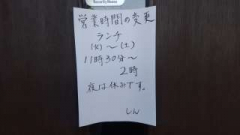 営業時間の変更
ランチ
(火)〜(土)
11時30分〜
2時
夜は休みです。